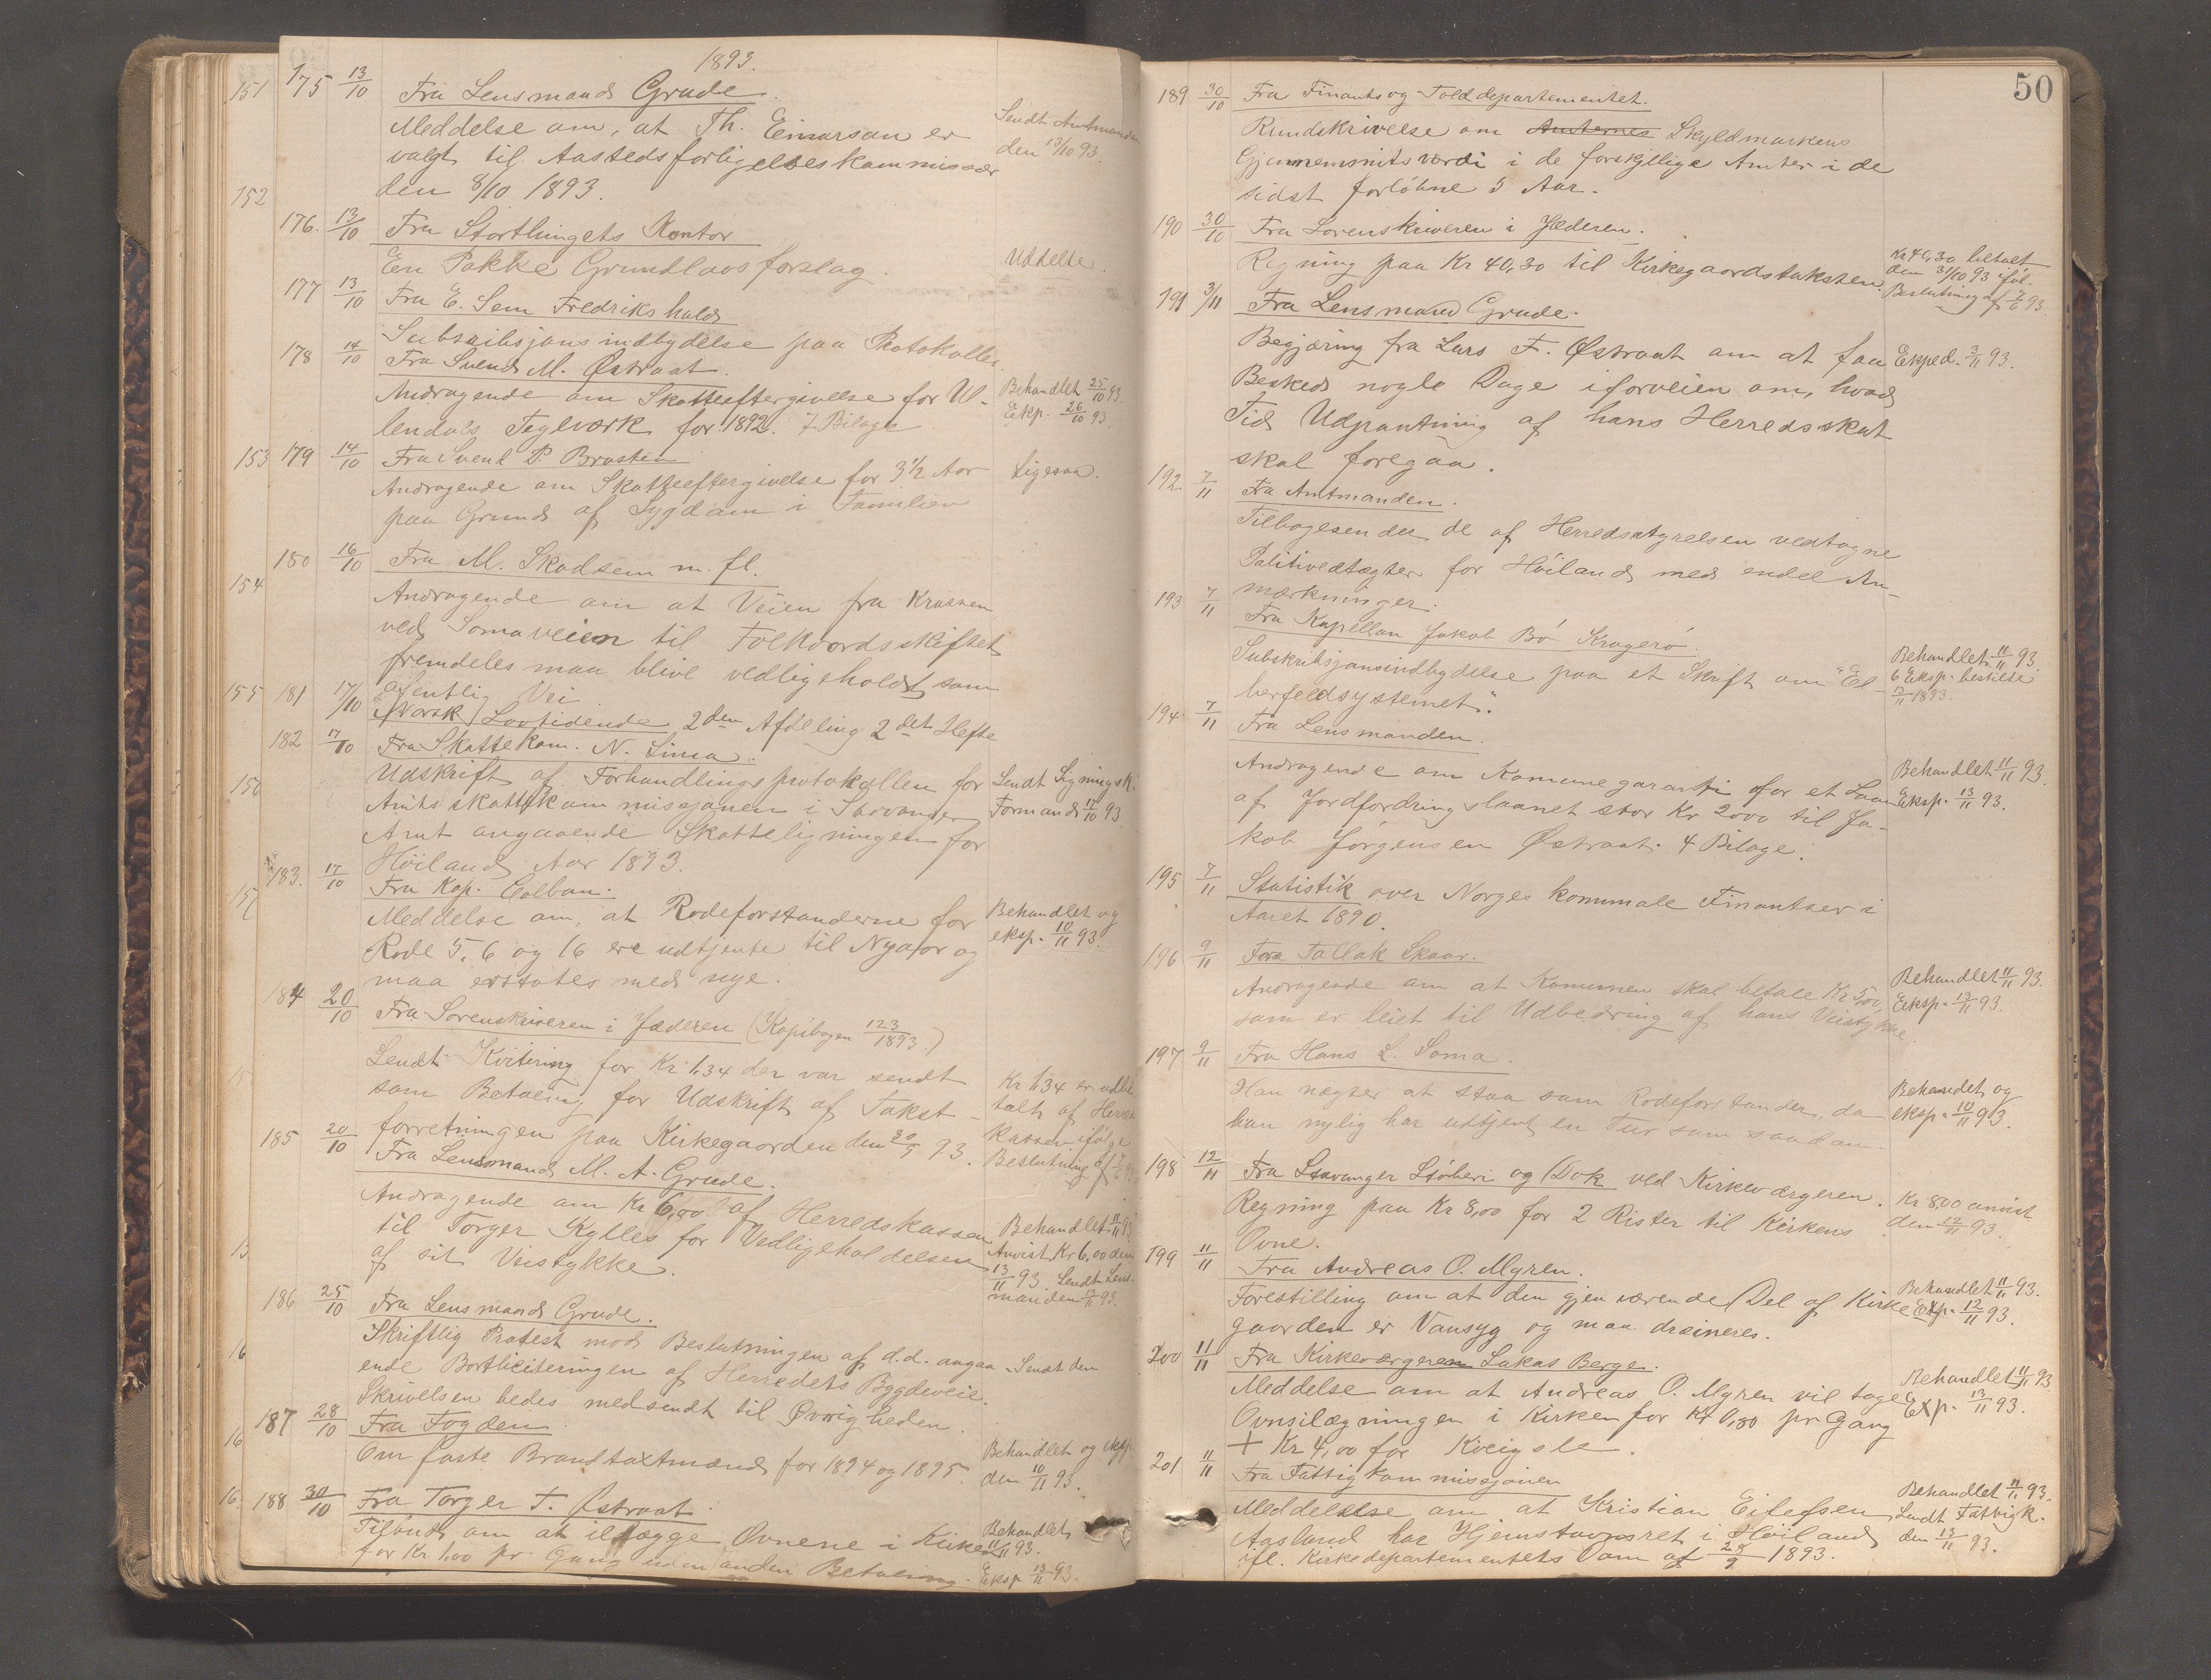 1893.
175 13/10 Fra Lensmand Grude.
Meddelse om, at Th. Einarsan er
valgt til Aastedsforligelseskommissær
den 8/10 1893.
Sendt Amtmanden
den 13/10 93.
176. 13/10 Fra Storthingets Kontor
En Pakke Grundlovsforslag.
Uddelte.
177 13/10 Fra E. Sem Fredrikshald
Subskribsjonsindbydelse paa Protokoller.
178 14/10 Fra Svend M. Østraat.
Andragende om Skatteeftergivelse for Ul-
lendals Teglværk for 1892. 7 Bilage
Behandlet 25/10 93.
Eksp. 26/10 93.
179 14/10 Fra Svend P. Brastein
Andragende om Skatteeftergivelse for 3 1/2 Aar
paa Grund af Sygdom i Familien
Ligesaa.
180 16/10 Fra M. Skadsem m. fl.
Andragende om at Veien fra Krossen
ved Somaveien til Folkvordsskiftet
fremdeles maa blive vedligeholdt som
offentlig Vei
181 17/10 Norsk Lovtidende 2den Afdeling 2det Hefte
182 17/10 Fra Skattekom. N. Lima.
Udskrift af Forhandlingsprotokollen for
Amtsskattekommissjonen i Stavanger
Amt angaaende Skatteligningen for
Høiland Aar 1893.
Sendt Ligningsk.
Formand 17/10 93.
183. 17/10 Fra Kap. Colban.
Meddelse om, at Rodeforstanderne for
Rode 5, 6 og 16 ere udtjente til Nyaar og
maa erstates med nye.
Behandlet og
eksp. 10/11 93.
184 20/10 Fra Sorenskriveren i Jæderen (Kopibogen 123/1893.)
Sendt Kvitering for Kr 1.34 der var sendt
som Betaling for Udskrift af Takst-
forretningen paa Kirkegaarden den 30/5 93.
Kr 1.34 er udbe
talt af Herreds
kassen ifølge
Beslutning af
185 20/10 Fra Lensmand M. A. Grude.
Andragende om Kr 6,00 af Herredskassen
til Torger Kylles for Vedligeholdelsen
af sit Veistykke.
Behandlet 11/11 93.
Anvist Kr 6.00 den
13/11 93. Sendt Lens-
manden 13/11 93.
186 25/10 Fra Lensmand Grude.
Skriftlig Protest mod Beslutningen af d.d. angaa-
ende Bortliciteringen af Herredets Bygdeveie.
Skrivelsen bedes medsendt til Øvrigheden.
Sendt den
187 28/10 Fra Fogden
Om faste Brandtaxtmænd for 1894 og 1895.
Behandlet og eksp.
den 10/11 93.
188 30/10 Fra Torger T. Østraat.
Tilbud om at ilægge Ovnene i Kirken
for Kr 1.00 pr Gang uden anden Betaling.
Behandlet
11/11 93.
Eksp 13/11 93.
151
152
153
154
155
156
157
50
189 30/10 Fra Finants og Tolddepartementet.
Rundskrivelse om Amternes Skyldmarkens
Gjennemsnitsværdi i de forskjellige Amter i de
sidst forløbne 5 Aar.
190 30/10 Fra Sorenskriveren i Jæderen.
Regning paa Kr 40,30 til Kirkegaardstaksten.
Kr 40,30 betalt
den 31/10 93 iføl.
Beslutning af 7/6 93
191 3/11 Fra Lensmand Grude.
Begjæring fra Lars T. Østraat om at faa
Besked nogle Dage iforveien om, hvad
Tid Udpantning af hans Herredsskat
skal foregaa.
Eksped. 3/11 93.
192 7/11 Fra Amtmanden.
Tilbagesender de af Herredsstyrelsen vedtagne
Politivedtægter for Høiland med endel An-
mærkninger.
193 7/11 Fra Kapellan Jakob Bø Kragerø.
Subskribsjonsindbydelse paa et Skrift om "El-
berfeldsystemet".
Behandlet 11/11 93.
6 Eksp. bestilte
13/11 1893.
194 7/11 Fra Lensmanden.
Andragende om Komunegaranti for et Laan
af Jordfordringslaanet stor Kr 2000 til Ja-
kob Jørgensen Østraat. 4 Bilage.
Behandlet 11/11 93.
Eksp. 13/11 93.
195 7/11 Statistik over Norges kommunale Finantser i
Aaret 1890.
196 9/11 Fra Tallak Skaar.
Andragende om at Komunen skal betale Kr 5,00,
som er leiet til Udbedring af hans Veistykke.
Behandlet 11/11 93.
Eksp. 13/11 93.
197 9/11 Fra Hans L. Soma.
Han negter at staa som Rodeforstander, da
han nylig har udtjent en Tur som saadan.
Behandlet og
eksp. 10/11 93.
198 12/11 Fra Stavanger Støberi og Dok ved Kirkeværgeren.
Regning paa Kr 8,00 for 2 Rister til Kirkens
Ovne.
Kr 8,00 anvist
den 12/11 93.
199 11/11 Fra Andreas O. Myren.
Forestilling om at den gjenværende Del af Kirke-
gaarden er Vansyg og maa dræineres.
Behandlet 11/11 93.
Exp. 12/11 93.
200 11/11 Fra Kirkeværgeren Lukas Berge.
Meddelse om at Andreas O. Myren vil tage
Ovnsilægningen i Kirken for Kr 0,80 pr Gang
+ Kr 4,00 for Kvigsle.
Behandlet 11/11 93.
Exp. 13/11 93.
201 11/11 Fra Fattigkommissjonen
Meddelelse om at Kristian Eilefsen
Aasland har Hjemstavnsret i Høiland
ifl. Kirkedepartementets Dom af 28/9 1893.
Behandlet 11/11 93.
Sendt Fattigk.
den 13/11 93.